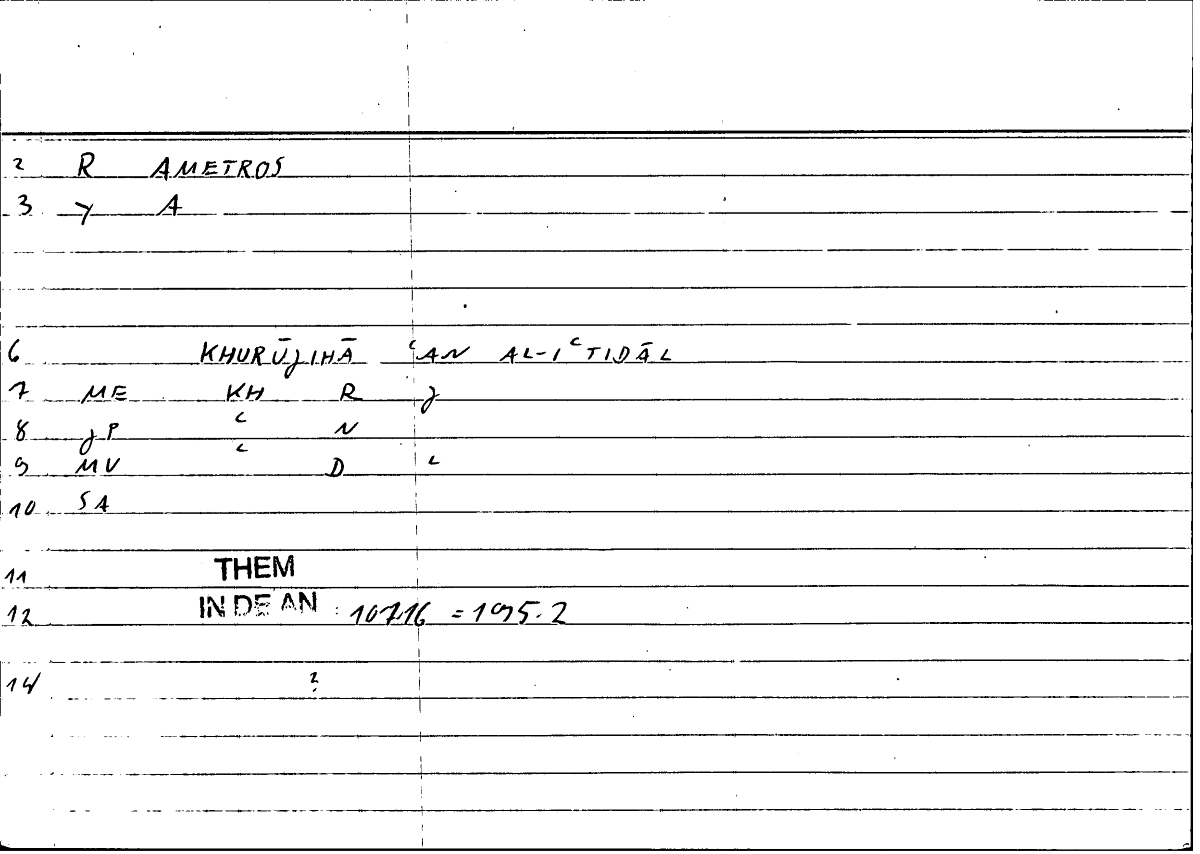 2 R AMETROS
3 γ A
6 KHURŪJIHĀ ʿAN AL-IʿTIDĀL
7 ME KH R J
8 JP ʿ N
9 MV ʿ D L
10 SA
11 THEM
12 IN DE AN : 107.16 = 195.2
14 ?